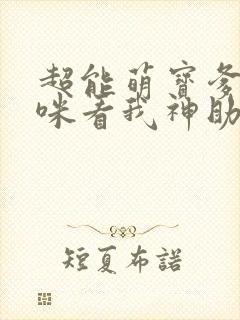 超能萌寶爹
咪看我神助
短夏布諾